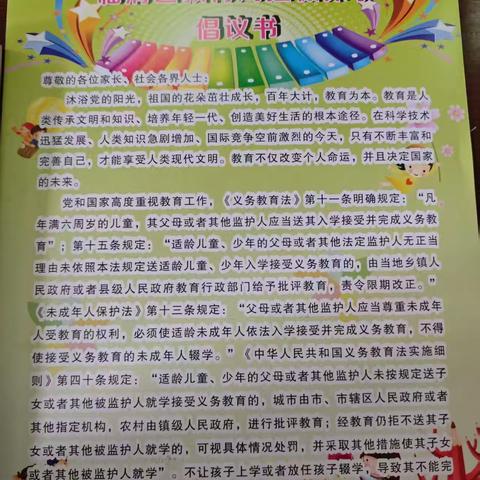 倡议书
尊敬的各位家长、社会各界人士：
沐浴党的阳光，祖国的花朵茁壮成长，百年大计，教育为本。教育是人
类传承文明和知识、培养年轻一代、创造美好生活的根本途径。在科学技术
迅猛发展、人类知识急剧增加、国际竞争空前激烈的今天，只有不断丰富和
完善自己，才能享受人类现代文明。教育不仅改变个人命运，并且决定国家
的未来。
党和国家高度重视教育工作，《义务教育法》第十一条明确规定：“凡
年满六周岁的儿童，其父母或者其他监护人应当送其入学接受并完成义务教
育”；第十五条规定：“适龄儿童、少年的父母或者其他法定监护人无正当
理由未依照本法规定送适龄儿童、少年入学接受义务教育的，由当地乡镇人
民政府或者县级人民政府教育行政部门给予批评教育，责令限期改正。”
《未成年人保护法》第十三条规定：“父母或者其他监护人应当尊重未成年
人受教育的权利，必须使适龄未成年人依法入学接受并完成义务教育，不得
使接受义务教育的未成年人辍学。”《中华人民共和国义务教育法实施细
则》第四十条规定：“适龄儿童、少年的父母或者其他监护人未按规定送子
女或者其他被监护人就学接受义务教育的，城市由市、市辖区人民政府或者
其他指定机构，农村由镇级人民政府，进行批评教育；经教育仍拒不送其子
女或者其他被监护人就学的，可视具体情况处罚，并采取其他措施使其子女
或者其他被监护人就学”。不让孩子上学或者放任孩子辍学，导致其不能完